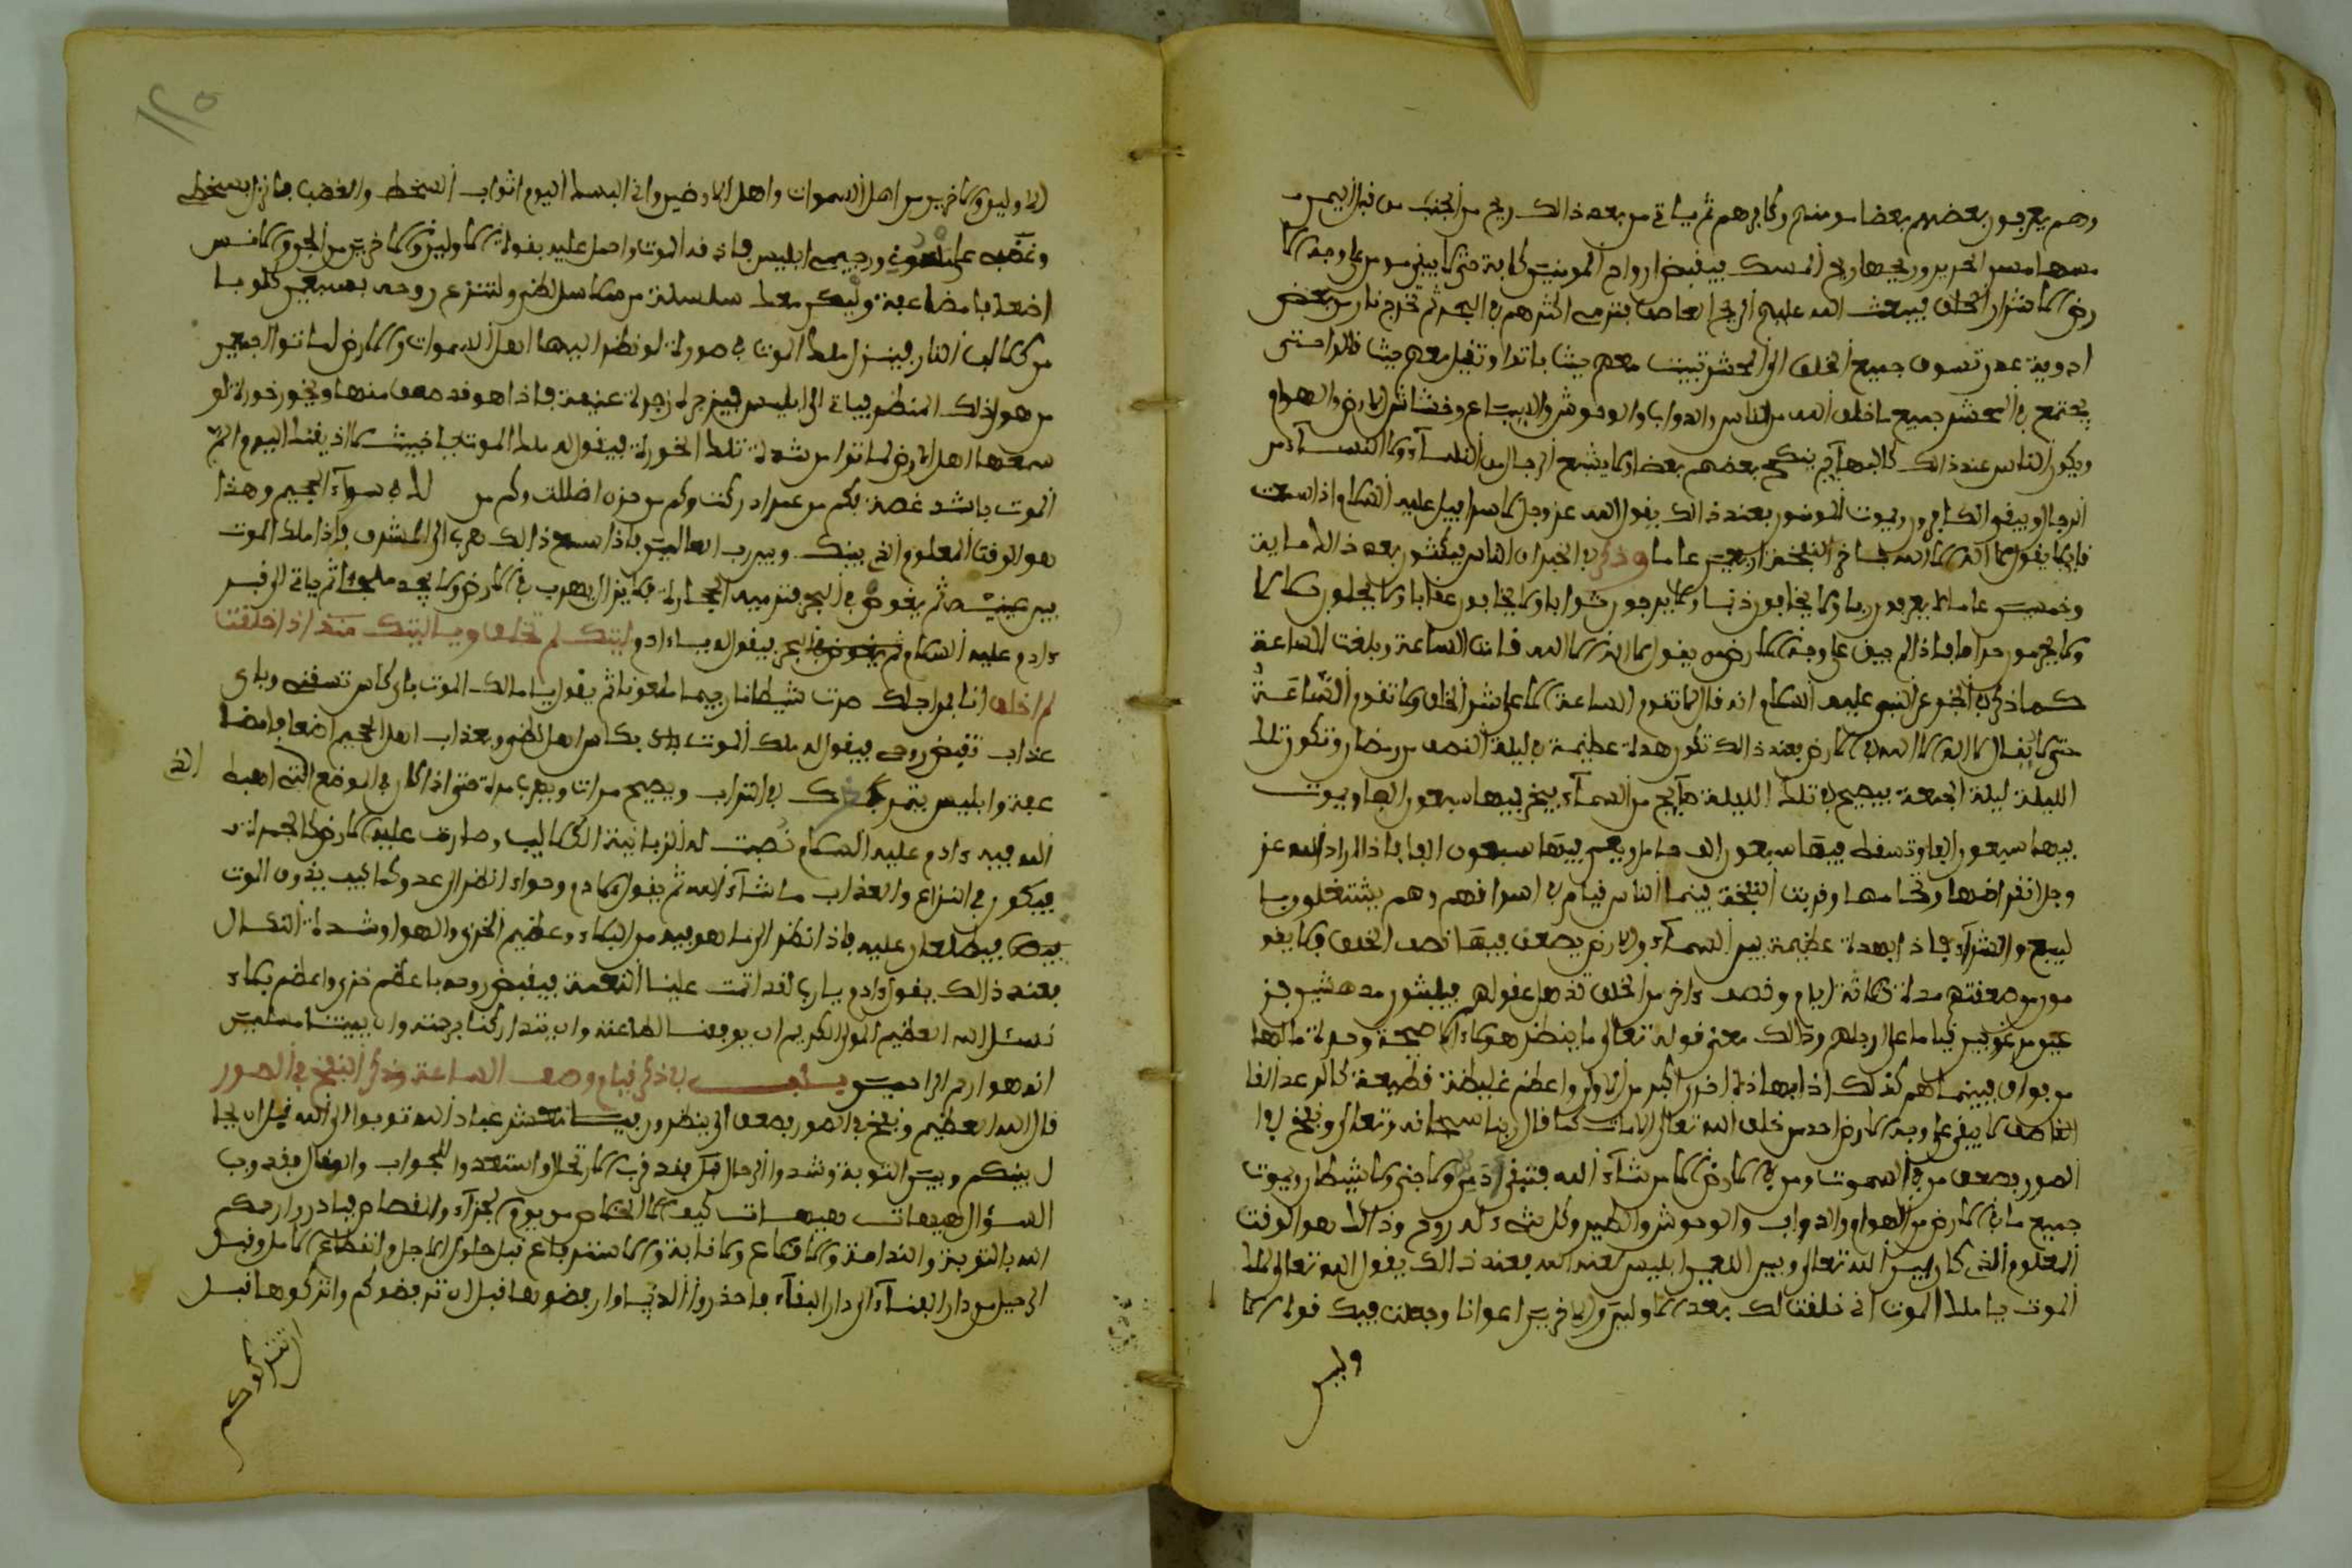 وهم يعرفون بعضهم بعضا مومنهم وكافرهم ثم ياتي من بعد ذالك ريح من الجنة من قبل اليمن
مسها مس الحرير وريحها ريح المسك فيقبض ارواح المومنين كافة حتى لا يبقى مومن على وجه الا
رض الا شرار الخلق فيبعث الله عليهم الريح العاصف فترمى اكثرهم في البحر ثم تخرج نار من بعض
اودية عدن تسوق جميع الخلق الى المحشر تبيت معهم حيث باتوا وتقيل معهم حيث قالوا حتى
يجتمع في المحشر جميع ما خلق الله من الناس والدواب والوحوش والسباع وخشاش الارض والهوام
ويكون الناس عند ذالك كالبهآيم ينكح بعضهم بعضا ولا يشبع الرجال من النسآء ولا النسآء من
الرجال ويبقوا الكافرون ويموت المومنون فعند ذالك يقول الله عز وجل لاسرافيل عليه السلام اذا سمعت
قايلا يقول لا اله الا الله فاخر النفخة اربعين عاما وذكر في الخبر ان الناس يمكثون بعد ذالك ماية
وخمسين عاما لا يعرفون ربا ولا يخافون ذنبا ولا يرجون ثوابا ولا يخافون عقابا ولا يحلون حلالا
ولا يحرمون حراما فاذا لم يبق على وجه الارض من يقول لا اله الا الله قامت الساعة وبلغت الساعة
كما ذكر في الخبر عن النبي عليه السلام انه قال لا تقوم الساعة الا على شر الخلق ولا تقوم الساعة
حتى لا يقال لا اله الا الله في الارض فعند ذالك تكون هدة عظيمة في ليلة النصف من رمضان وتكون تلك
الليلة ليلة الجمعة فيصيح في تلك الليلة صآيح من السمآء يخر فيها سبعون الفا ويموت
فيها سبعون الفا وتسقط فيها سبعون الف حامل ويعمى فيها سبعون الفا فاذا اراد الله عز
وجل انقراضها وتمامها وقربت النفخة بينما الناس قيام في اسواقهم وهم يشتغلون با
لبيع والشرآء فاذا بهدة عظيمة بين السمآء والارض يصعق فيها نصف الخلق ولا يفو
مون من صعقتهم مدة ثلاثة ايام ونصف واخر من الخلق تذهل عقولهم فيبقون مدهشين فز
عين مرعوبين قياما على ارجلهم وذالك معنى قوله تعالى ما ينظر هولاء الا صيحة وحدة ما لها
من فواق فبينما هم كذلك اذا بهدة اخرى اكبر من الاولى واعظم غليظة فظيعة كالرعد القا
القاصف لا يبقى على وجه الارض احد من خلق الله تعالى الا مات كما قال ربنا سبحانه وتعالى ونفخ في ا
الصور فصعق من في السموت ومن في الارض الا من شآء الله فتبقى ولا جنى ولا شيطان ويموت
جميع ما في الارض من الهوام والدواب والوحوش والطير وكل شيء له روح وذالك هو الوقت
المعلوم الذي كان بين الله تعالى وبين اللعين ابليس لعنه الله فعند ذالك يقول الله تعالى لملك
الموت يا ملك الموت اني خلقت لك بعدد الاولين والاخرين اعوانا وجعلت فيك قوة الا
وليس
١٢٥
الاولين والاخرين من اهل السموات واهل الارضين واني البسك اليوم اثواب السخط والغضب فانزل بسخطى
وغضبى على ورجيمى ابليس فاذقه الموت واحمل عليه بقوة الاولين والاخرين من الجن والانس
اضعافا مضاعفة وليكن معك سلسلة من سلاسل لظى ولتنزع روحه بسبعين كلوبا
من كلاليب النار فينزل ملك الموت في صورة لو نظر اليها اهل السموات والارض لماتوا اجمعين
من هول ذلك المنظر فيات الى ابليس فيزجره زجرة عنيفة فاذا هو قد صعق منها ويخور خورة لو
سمعها اهل الارض لماتوا من شدة تلك الخورة فيقول له ملك الموت يا خبيث لاذيقنك اليوم الم
الموت باشد غصة فكم من عمر ادركت وكم من حزن اضللت وكم من لك في سوآء الجحيم وهذا
هو الوقت المعلوم الذي بينك وبين رب العالمين فاذا سمع ذالك هرب الى المشرق فاذا ملك الموت
بين عينيه ثم يغوض في البحر فترميه البحار فلا يزال يهرب في الارض ولا يجد ملجا ثم يات الى قبر
ءادم عليه السلام فيقول له يا ءادم ليتك لم تخلق ويا ليتك منذ اذ خلقت
لم اخلق انا فمن اجلك صرت شيطانا رجيما ملعونا ثم يقول يا مالك الموت باى كاس تسقنى وباى
عذاب تقبض روحى فيقول له ملك الموت بكاس اهل لظى وبعذاب اهل الجحيم اضعافا مضا
عفة وابليس يتمرك في التراب ويصيح مرات ويهرب مرة حتى اذا كان في الموضع الذي اهبط
الله فيه ءادم عليه السلام نصبت له الزبانية الكلاليب وصارت عليه الارض كالجمرة
فيكون في النزاع والعذاب ما شآء الله ثم يقول لادم وحواء انظرا الى عدوكما كيف يذوق الموت
فيطلعان عليه فاذا نظرا الى ما هو فيه من البكاء وعظيم الخزى والهوا وشدة النكال
فعند ذالك يقول ءادم يا رب لقد اتممت علينا النعمة فيقبض روحه باعظم خزى واعظم بكاء
نسئل الله العظيم المولى الكريم ان يوفقنا الطاعة وان يتداركنا برحمته وان يميتنا مسلمين
انه هو ارحم الراحمين في ذكر قيام وصف الساعة وذكر النفخ في الصور
قال الله العظيم ونفخ في الصور فصعق الى ينظرون فيا معشر عباد الله توبوا الى الله قبل ان يحا
ل بينكم وبين التوبة وشدوا الرحال فقد قرب الارتحال واستعدوا للجواب والمقال فقد وجب
السؤال هيهات هيهات كيف لا الخلاص من يوم الجزآء والقصاص فبادروا رحمكم
الله بالتوبة والندامة والاقلاع والانابة والاسترجاع قبل حلول الاجل وانقطاع الامل وقبل
الرحيل من دار الفنآء الى دار البقآء فاحذروا الدنيا وارفضوها قبل ان ترفضوكم واتركوها قبل
ان تتركوكم